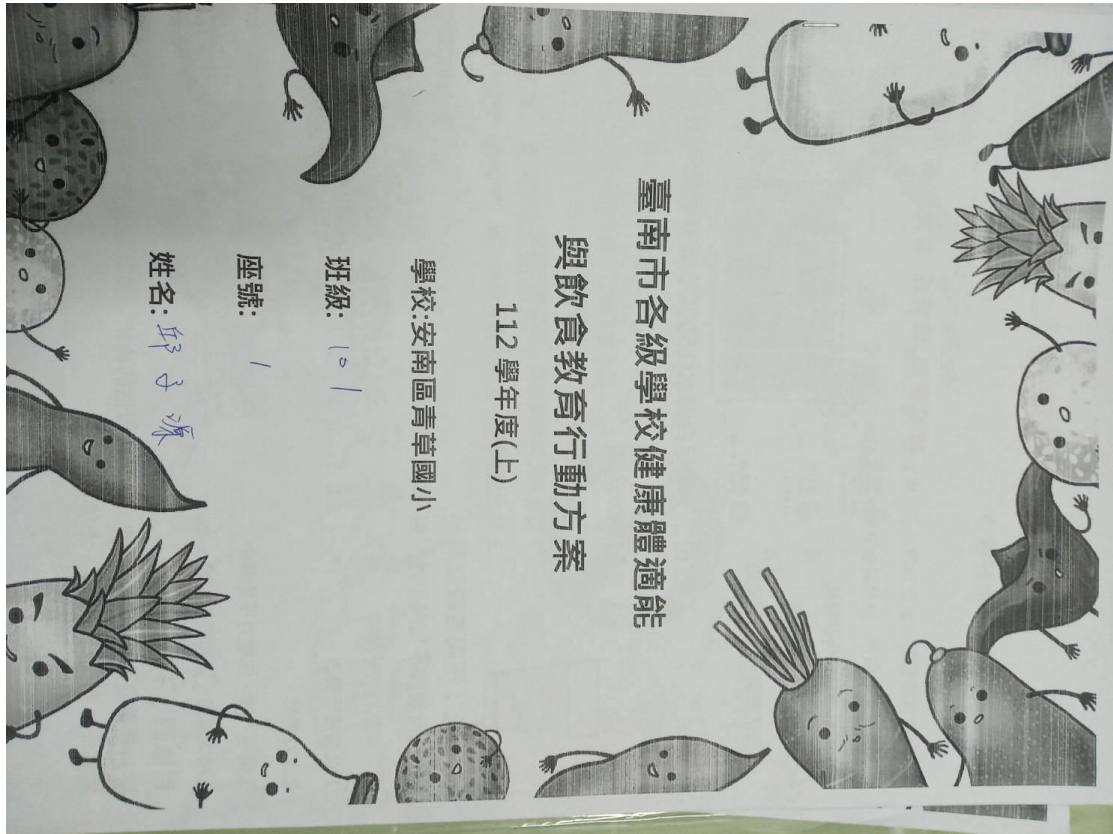 臺南市各級學校健康體適能
與飲食教育行動方案
112 學年度(上)
學校:安南區青草國小
班級: 101
座號: 1
姓名: 邱子源